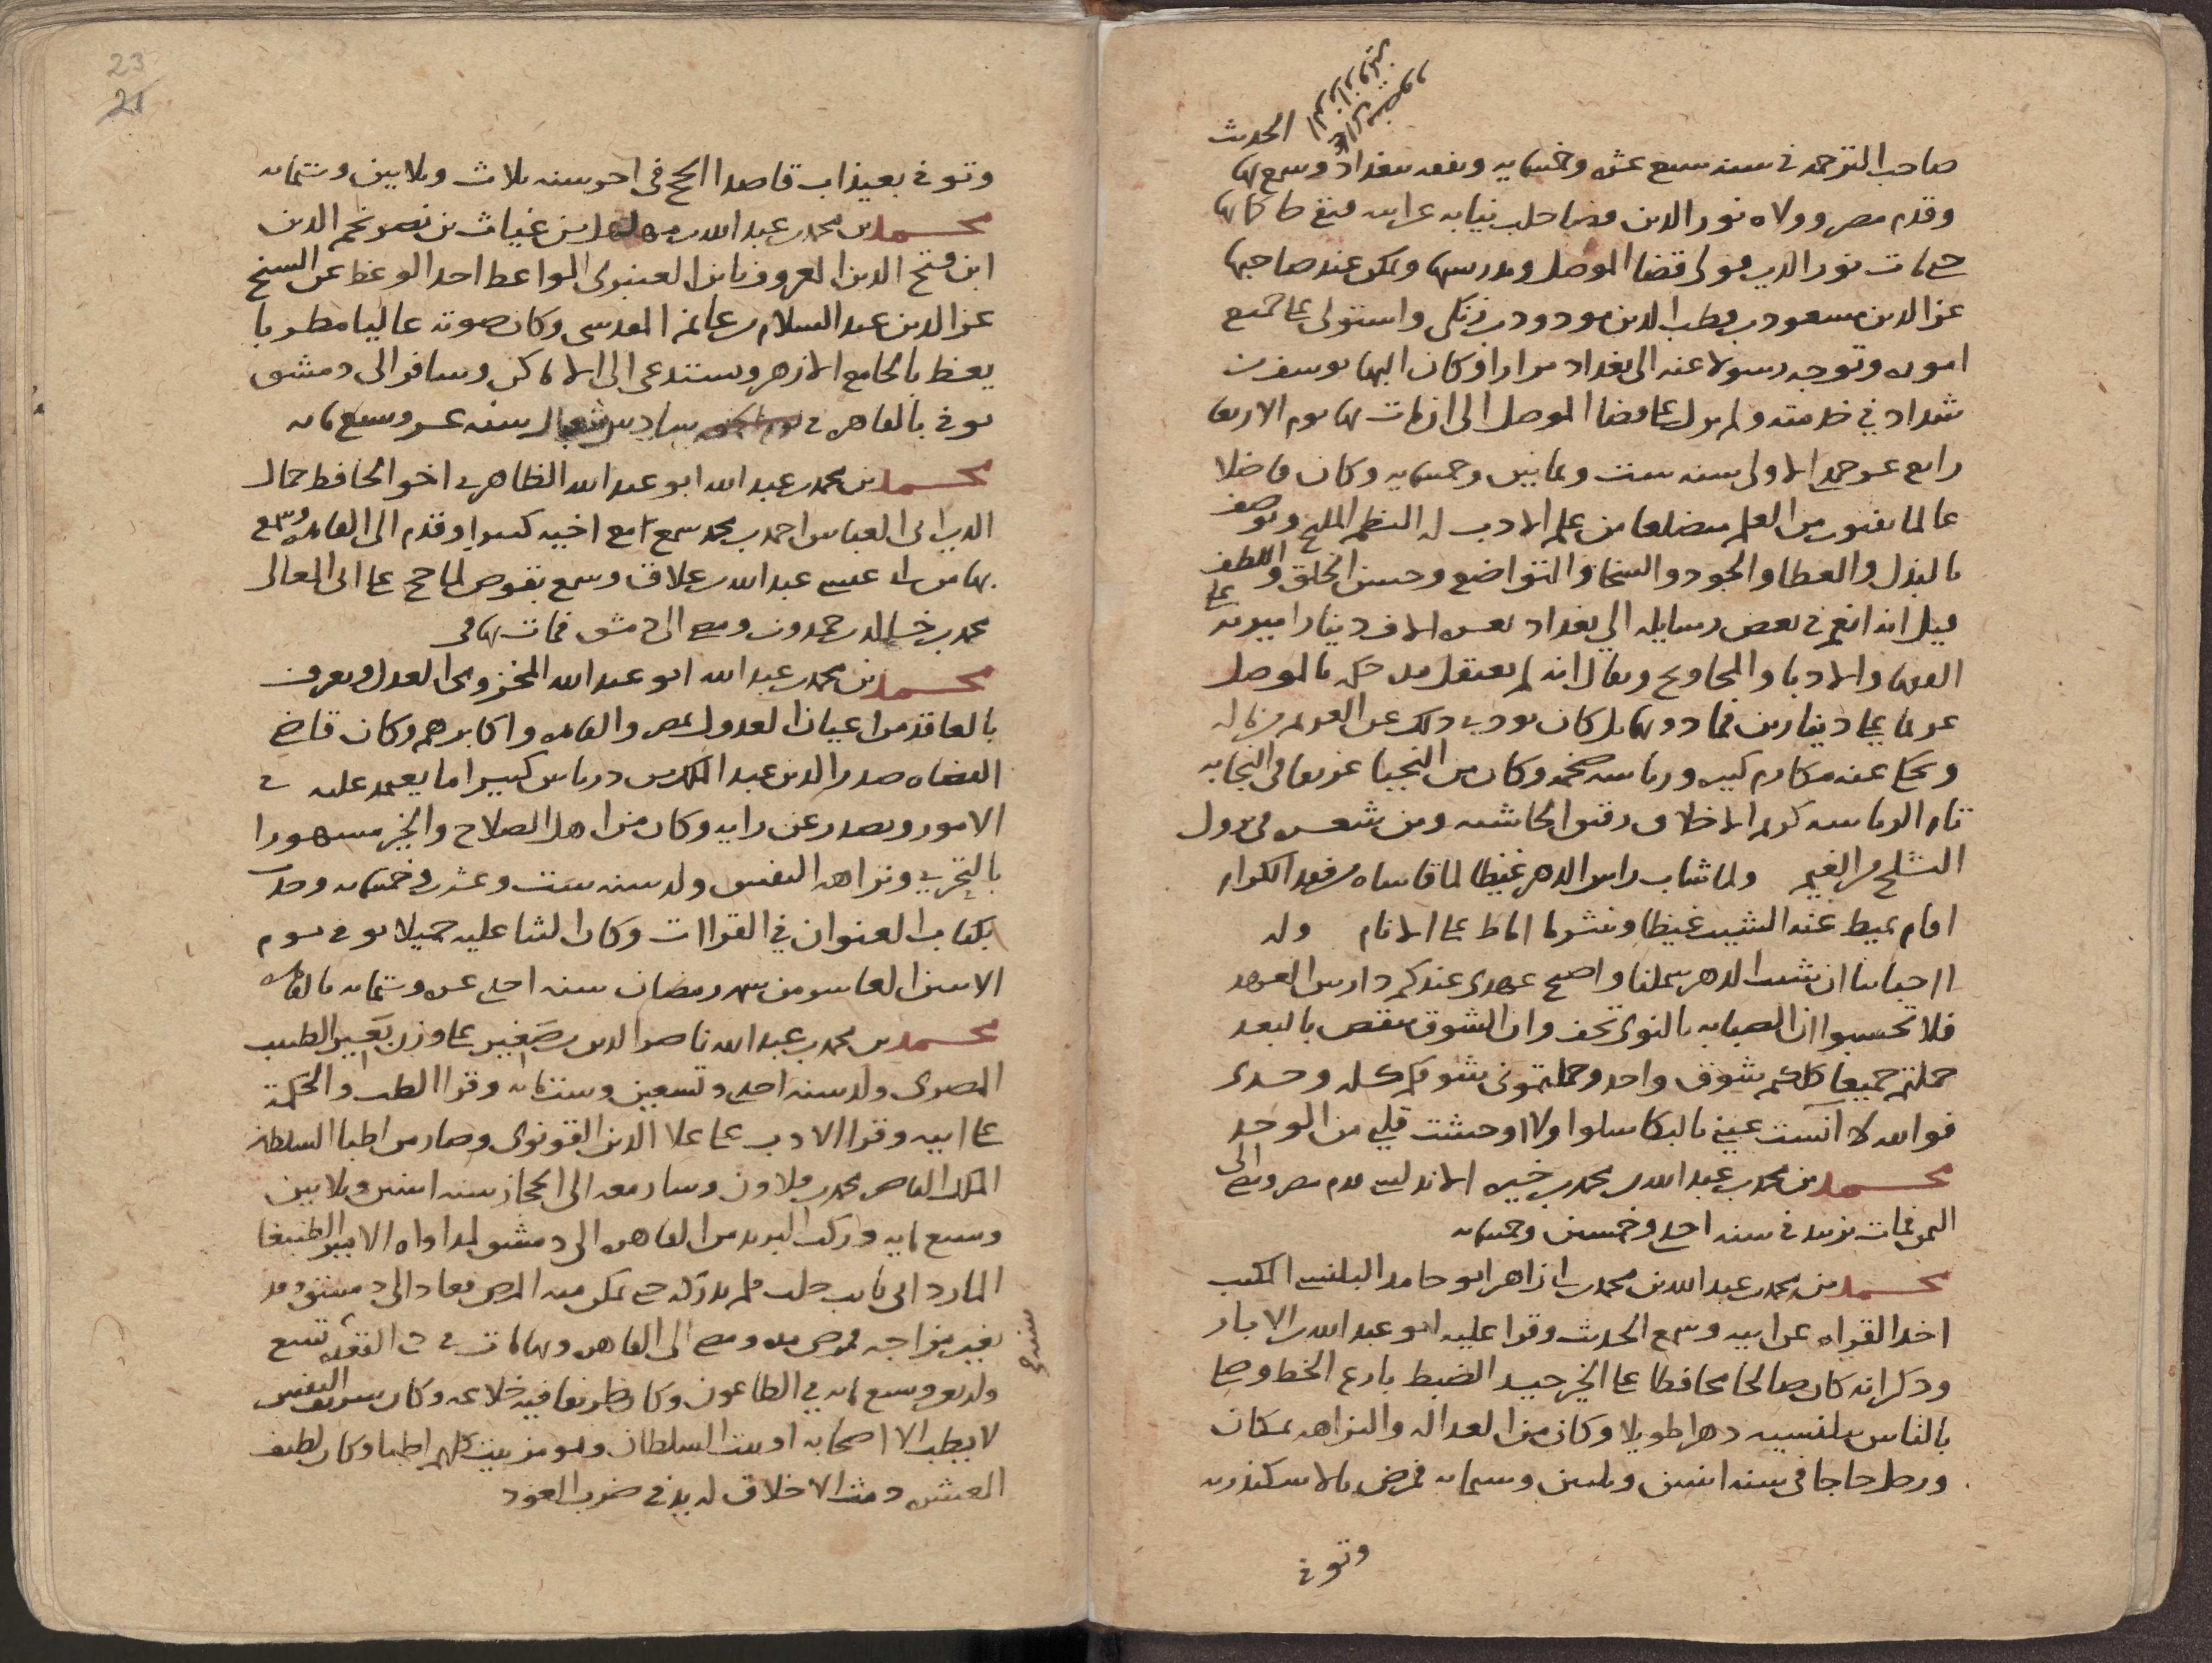 الحديث
صاحب الترجمة في سنة سبع عشرة وخمسمايه وتفقه ببغداد وسمع بها
وقدم مصر وولاه نور الدين قضا حلب نيابه عن ابيه فبقي حاكما بها
حتى مات نور الدين فولى قضا الموصل ومدرستها وتمكن عند صاحبها
عز الدين مسعود بن قطب الدين مودود بن زنكي واستولى على جميع
اموره وتوجه رسولا عنه الى بغداد مرارا وكان البها يوسف بن
شداد في خدمته ولم يزل على قضا الموصل الى ان مات بها يوم الاربعا
رابع عشر جمادى الاولى سنة ست وثمانين وخمسمايه وكان فاضلا
عالما بفنون من العلم متضلعا من علم الادب له النظم المليح ويوصف
بالبذل والعطا والجود والسخا والتواضع وحسن الخلق واللطف
قيل انه انعم في بعض رسايله الى بغداد بعشرة الاف دينار اميريه على
الفقها والادبا والمحاويج ويقال انه لم يعتقل مدة حكمه بالموصل
غريما على دينارين فما دونها بل كان يودي ذلك عن الغريم من ماله
ويحكى عنه مكارم كبيره ورياسه ضخمه وكان من النجبا عريقا في النجابه
تام الرياسه كريم الاخلاق رقيق الحاشيه ومن شعره في نزول
الثلج من الغيم ولما شاب راس الدهر غيظا لما قاساه من فقد الكرام
اقام يميط عنه الشيب غيظا وينثر ما اماط على الانام وله
ااحبابنا ان شتت الدهر شملنا واصبح عهدي عندكم دارس العهد
فلا تحسبوا ان الصبابه بالنوى تخف وان الشوق ينقص بالبعد
حملتم جميعا كلكم شوق واحد وحملتموني شوقكم كله وحدي
فوالله لا آنست عيني بالبكا سلوا ولا اوحشت قلبي من الوجد
محمد بن محمد بن عبد الله بن محمد بن خيره الاندلسي قدم مصر ومضى الى
اليمن فمات بزبيد في سنة احدى وخمسين وخمسمايه
محمد بن محمد بن عبد الله بن محمد بن ازاهر ابو حامد البلنسي المكتب
اخذ القراه عن ابيه وسمع الحديث وقرا عليه ابو عبد الله بن الابار
وذكر انه كان صالحا محافظا على الخير جيد الضبط بارع الخط وصلى
بالناس ببلنسيه دهرا طويلا وكان من العداله والنزاهه بمكان
ورحل حاجا في سنة اثنين وثلثين وستمايه فمرض بالاسكندريه
وتوفي
23
21
وتوفي بعيذاب قاصدا الحج في اخر سنه ثلاث وثلاثين وستمايه
محمد بن محمد بن عبد الله بن مهلهل بن غياث بن نصر نجم الدين
ابن فتح الدين المعروف بابن العنبري الواعظ اخذ الوعظ عن الشيخ
عز الدين عبد السلام بن غانم المقدسي وكان صوته عاليا مطربا
يعظ بالجامع الازهر ويستدعى الى الاماكن وسافر الى دمشق
توفي بالقاهره في سادس شوال سنه عشر وسبع مايه
محمد بن محمد بن عبد الله ابو عبد الله الظاهري اخو الحافظ جمال
الدين ابي العباس احمد بن محمد سمع مع اخيه كثيرا وقدم الى القاهره وسمع
بها من ابي عيسى عبد الله بن علاق وسمع بقوص لما حج على ابي المعالي
محمد بن خالد بن حمدون ومضى الى دمشق فمات بها في
محمد بن محمد بن عبد الله ابو عبد الله المخزومي العدل ويعرف
بالعاقد من اعيان العدول بمصر والقاهره واكابرهم وكان قاضي
القضاه صدر الدين عبد الملك بن درباس كثيرا ما يعتمد عليه في
الامور ويصدر عن رايه وكان من اهل الصلاح والخير مشهورا
بالتحري ونزاهه النفس ولد سنه ست وعشرين وخمسمايه وحدث
بكتاب العنوان في القراات وكان الثنا عليه جميلا توفي يوم
الاثنين العاشر من شهر رمضان سنه احدى عشره وستمايه بالقاهره
محمد بن محمد بن عبد الله ناصر الدين بن صغير على وزن بعير الطبيب
المصري ولد سنه احدى وتسعين وستمايه وقرا الطب والحكمة
على ابيه وقرا الادب على علا الدين القونوي وصار من اطبا السلطان
الملك الناصر محمد بن قلاون وسار معه الى الحجاز سنه اثنين وثلاثين
وسبع مايه وركب البريد من القاهره الى دمشق لمداواه الامير الطنبغا
المارداني نايب حلب فلم يدركه حتى تمكن منه المرض فعاد الى دمشق وقد
تغير مزاجه فمرض مده ومضى الى القاهره وبها مات في ذي القعده سنة تسع
واربعين وسبع مايه في الطاعون وكان ظريفا فيه خلاعه وكان شريف النفس
لا يطب الا اصحابه او بيت السلطان وهو من بيت كلهم اطبا وكان لطيف
العشره دمث الاخلاق له يد في ضرب العود